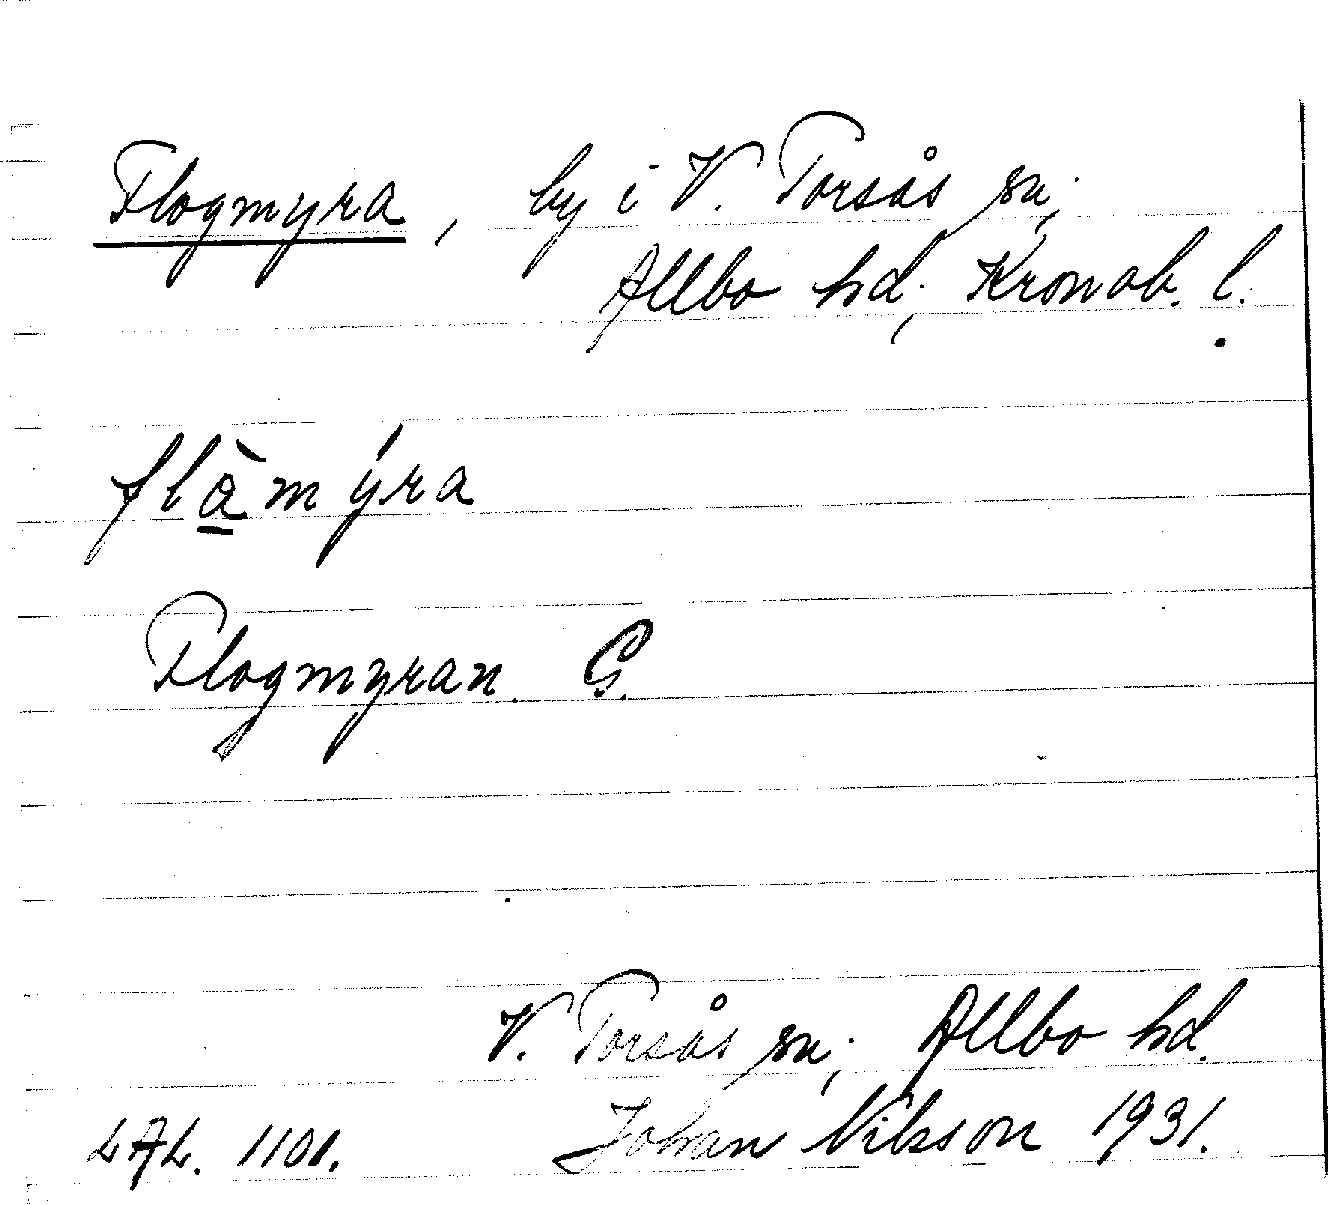 Flogmyra, by i V. Torsås sn.,
Allbo hd., Kronob. l.
flà̱mýra
Flogmyran. G.
V. Torsås sn., Allbo hd.
LAL. 1101. Johan Nilsson 1931.